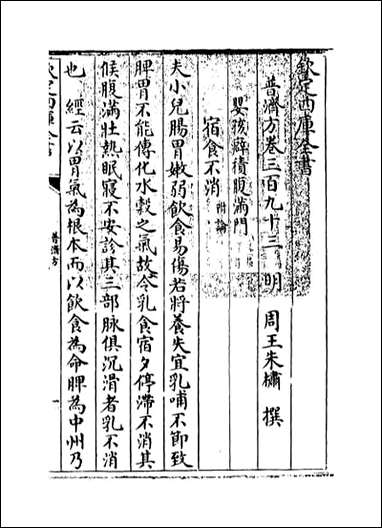 欽定四庫全書
普濟方卷三百九十三　明　周王朱橚　撰
嬰孩癖積腹滿門
宿食不消附論
夫小兒腸胃嫩弱飲食易傷若將養失宜乳哺不節致
脾胃不能傳化水穀之氣故令乳食宿夕停滯不消其
候腹滿壯熱眠寢不安診其三部脉俱沉滑者乳不消
也　經云以胃氣為根本而以飲食為命脾為中州乃
欽定四庫全書
普濟方
一